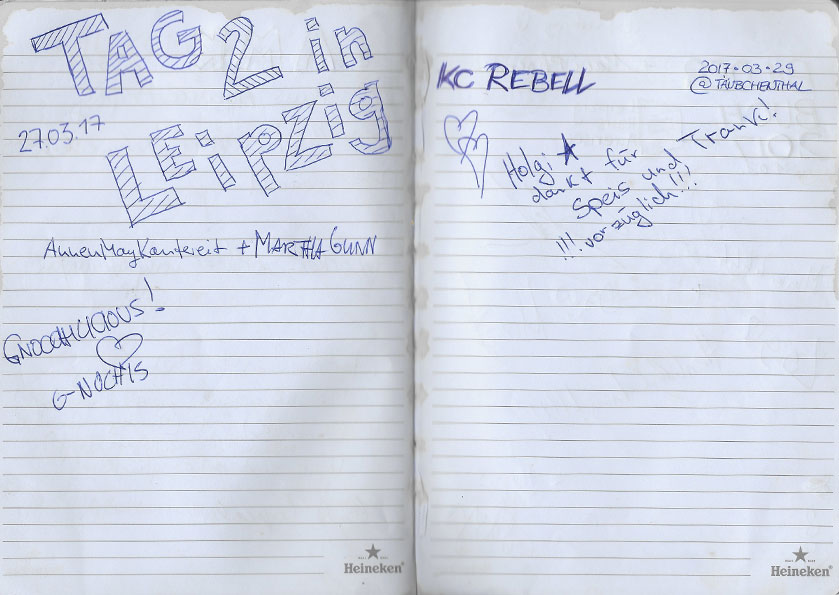 TAG 2 in
LEipZig
27.03.17
AnnenMayKantereit + MARTHA GUNN
GNOCCHILICIOUS!
G-NOCHIS
Heineken
KC REBELL
2017-03-29
@TÄUBCHENTHAL
Holgi
dankt für
Speis und Trank!
!!! vorzüglich!!!
Heineken